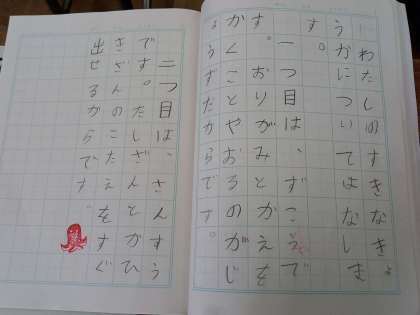 わたしのすきなきょ
うかについてはなしま
す。
一つ目は、ずこうで
す。おりがみとかえを
かくことやおるのがじ
ょうずだからです。
二つ目は、さんすう
です。たしざんとかひ
きざんのこたえをすぐ
出せるからです。